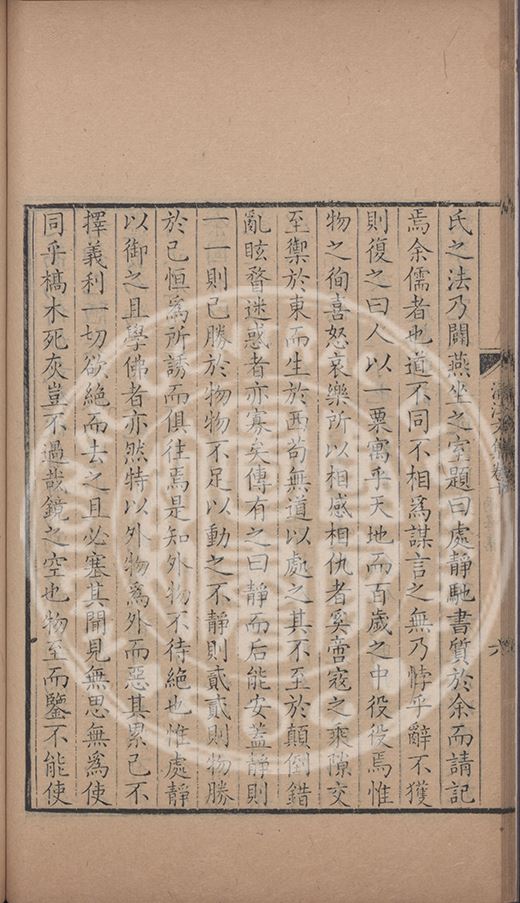 氏之法乃闢燕坐之室題曰處靜馳書質於余而請記
焉余儒者也道不同不相為謀言之無乃悖乎辭不獲
則復之曰人以一粟寓乎天地而百歲之中役役焉惟
物之徇喜怒哀樂所以相感相仇者奚啻寇之乘隙交
至禦於東而生於西茍無道以處之其不至於顛倒錯
亂眩瞀迷惑者亦寡矣傳有之曰靜而后能安蓋靜則
一一則己勝於物物不足以動之不靜則貳貳則物勝
於己恒為所誘而俱往焉是知外物不待絕也惟處靜
以御之且學佛者亦然特以外物為外而惡其累己不
擇義利一切欲絕而去之且必塞其聞見無思無為使
同乎槁木死灰豈不過哉鏡之空也物至而鑒不能使